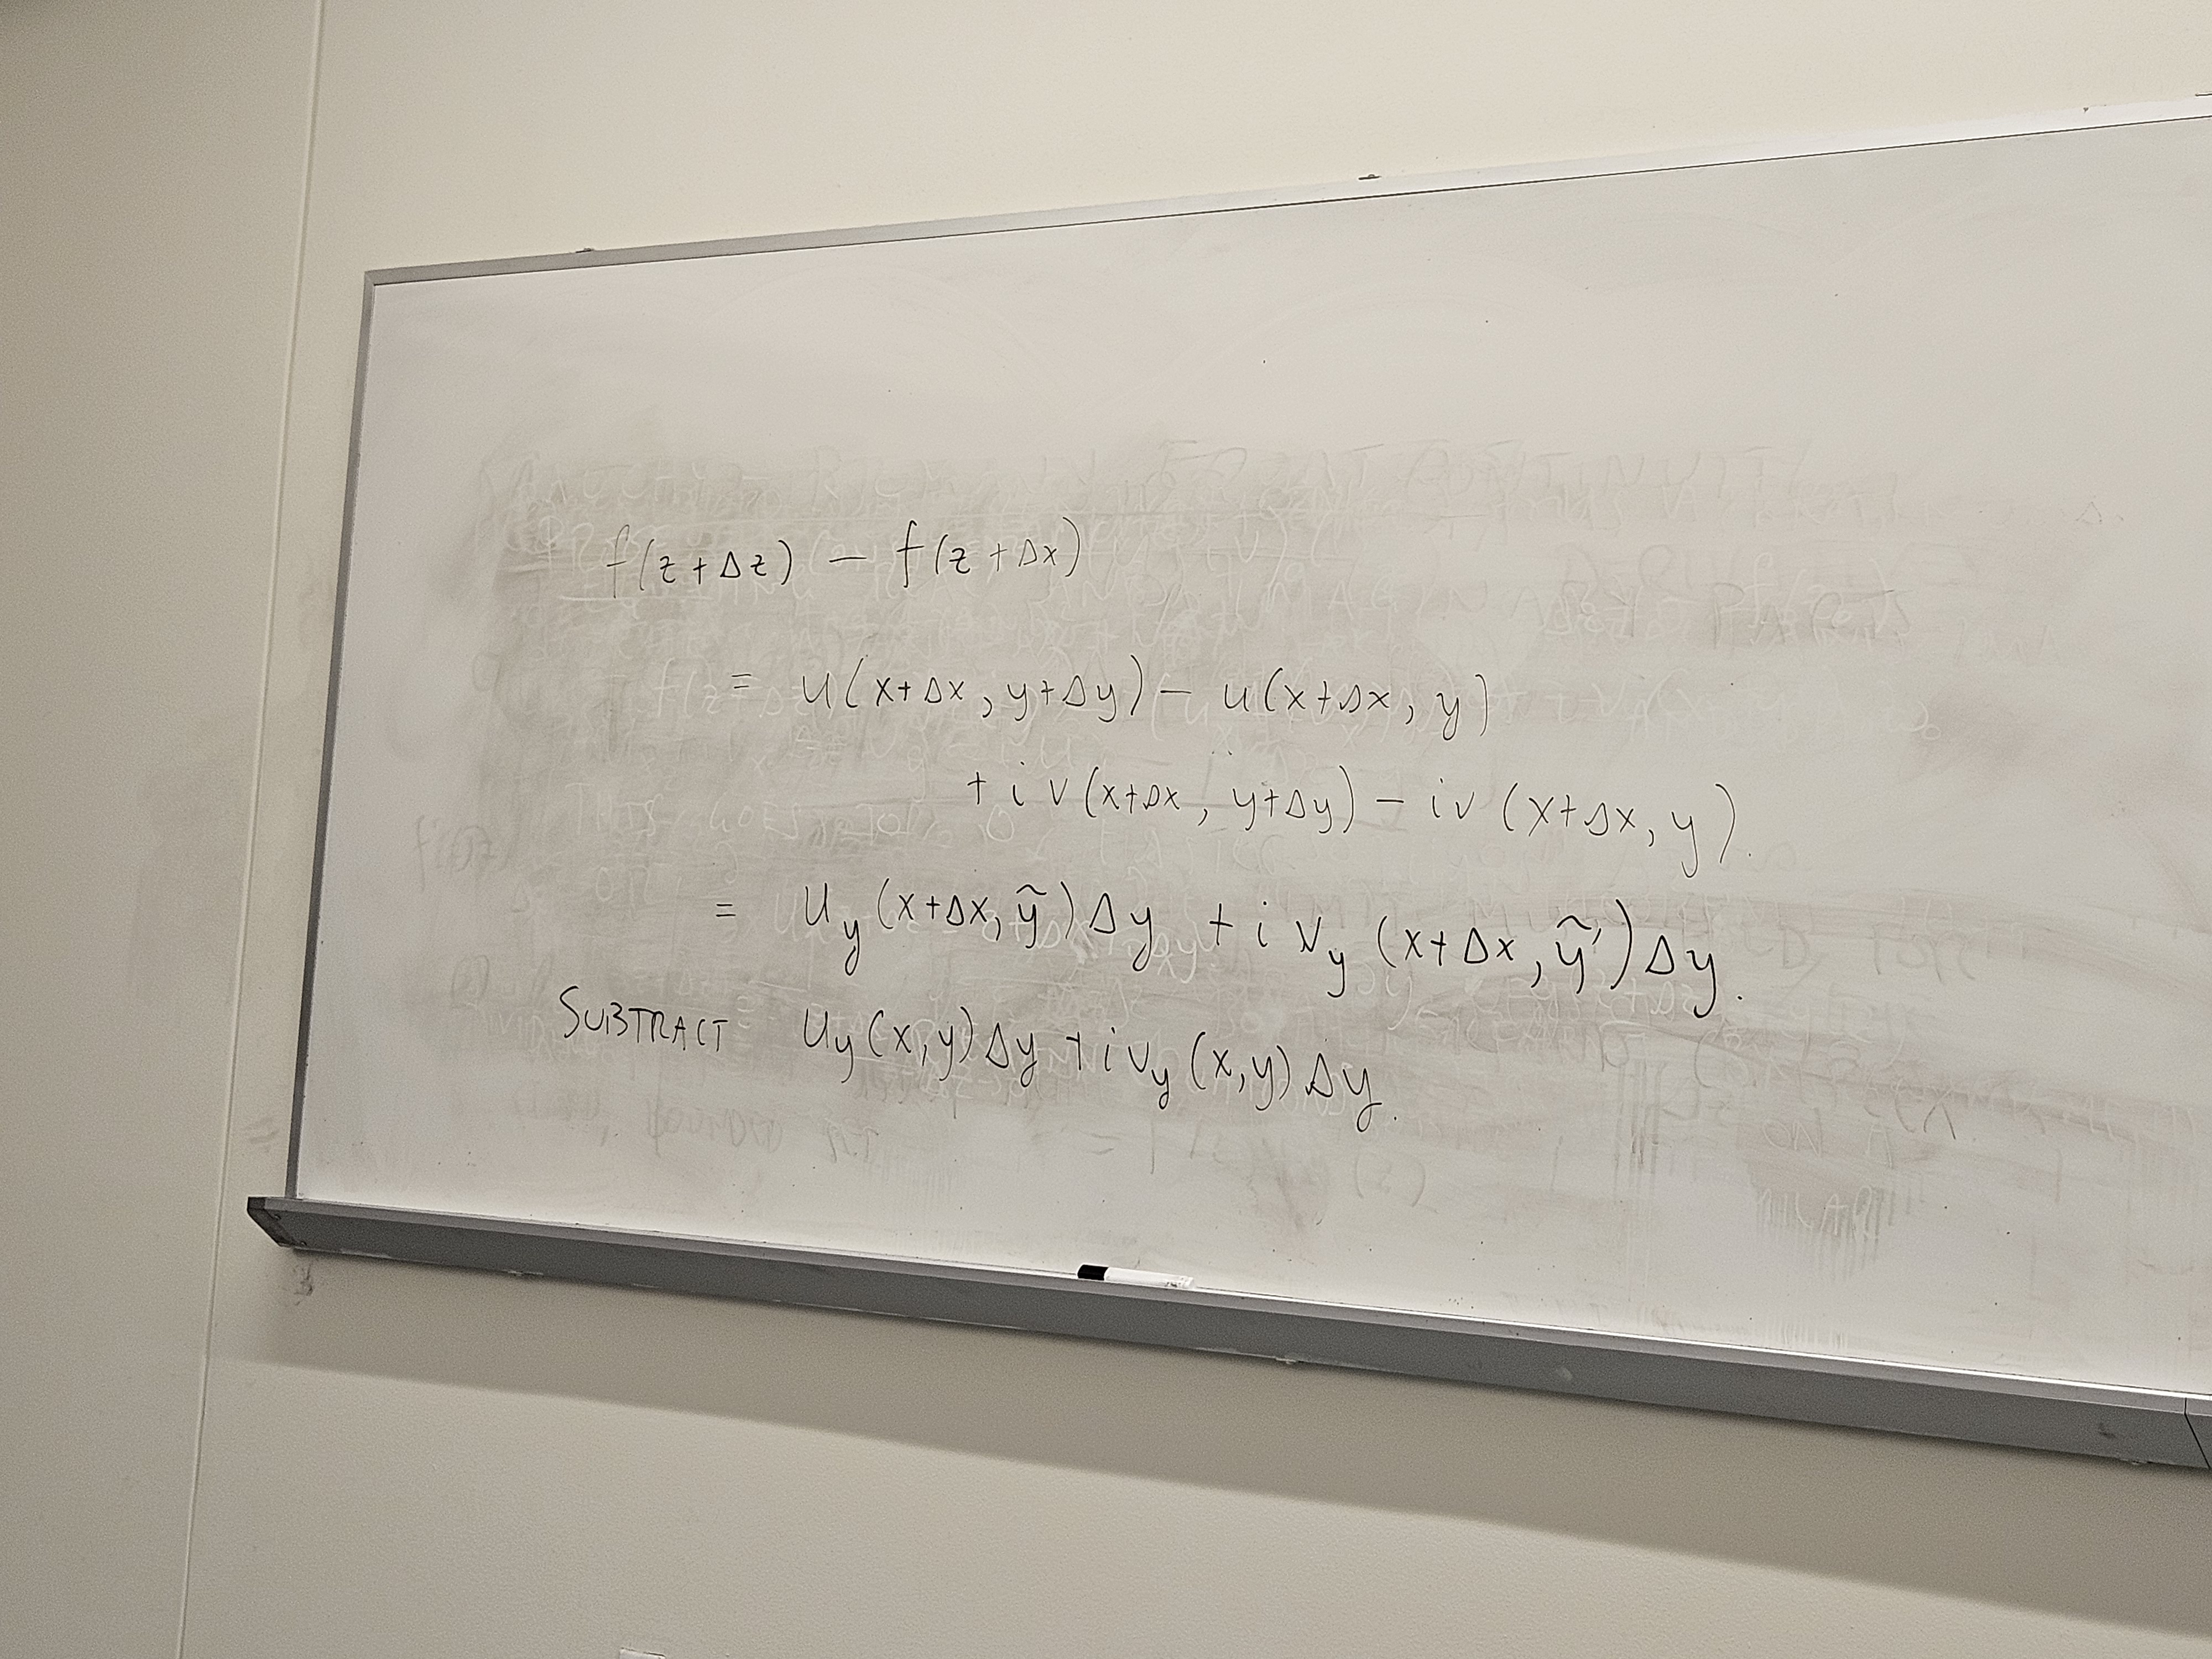 f(z+Δz) − f(z+Δx)
= u(x+Δx, y+Δy) − u(x+Δx, y)
+ i v(x+Δx, y+Δy) − i v(x+Δx, y).
= u_y(x+Δx, ỹ)Δy + i v_y(x+Δx, ỹ')Δy.
SUBTRACT u_y(x,y)Δy + i v_y(x,y)Δy.